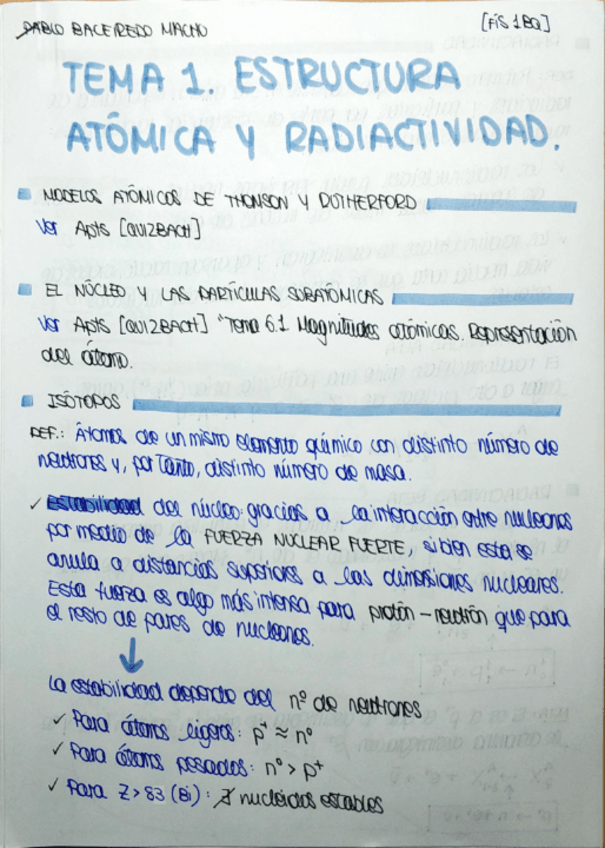 PABLO BACEIREDO MACHO [FÍS 1BQ]
TEMA 1. ESTRUCTURA
ATÓMICA Y RADIACTIVIDAD.
MODELOS ATÓMICOS DE THONSON Y RUTHERFORD
Ver Apts [QUIZBACH]
EL NÚCLEO Y LAS PARTÍCULAS SUBATÓMICAS
Ver Apts [QUIZBACH] "Tema 6.1 Magnitudes atómicas. Representación
del átomo.
ISÓTOPOS
DEF.: Átomos de un mismo elemento químico con distinto número de
neutrones y, por tanto, distinto número de masa.
✓ Estabilidad del núcleo: gracias a la interacción entre nucleones
por medio de la FUERZA NUCLEAR FUERTE, si bien esta se
anula a distancias superiores a las dimensiones nucleares.
Esta fuerza es algo más intensa para protón - neutrón que para
el resto de pares de nucleones.
↓
La estabilidad depende del nº de neutrones
✓ Para átomos ligeros: p⁺ ≈ n⁰
✓ Para átomos pesados: n⁰ > p⁺
✓ Para Z > 83 (Bi): ∄ nucleidos estables